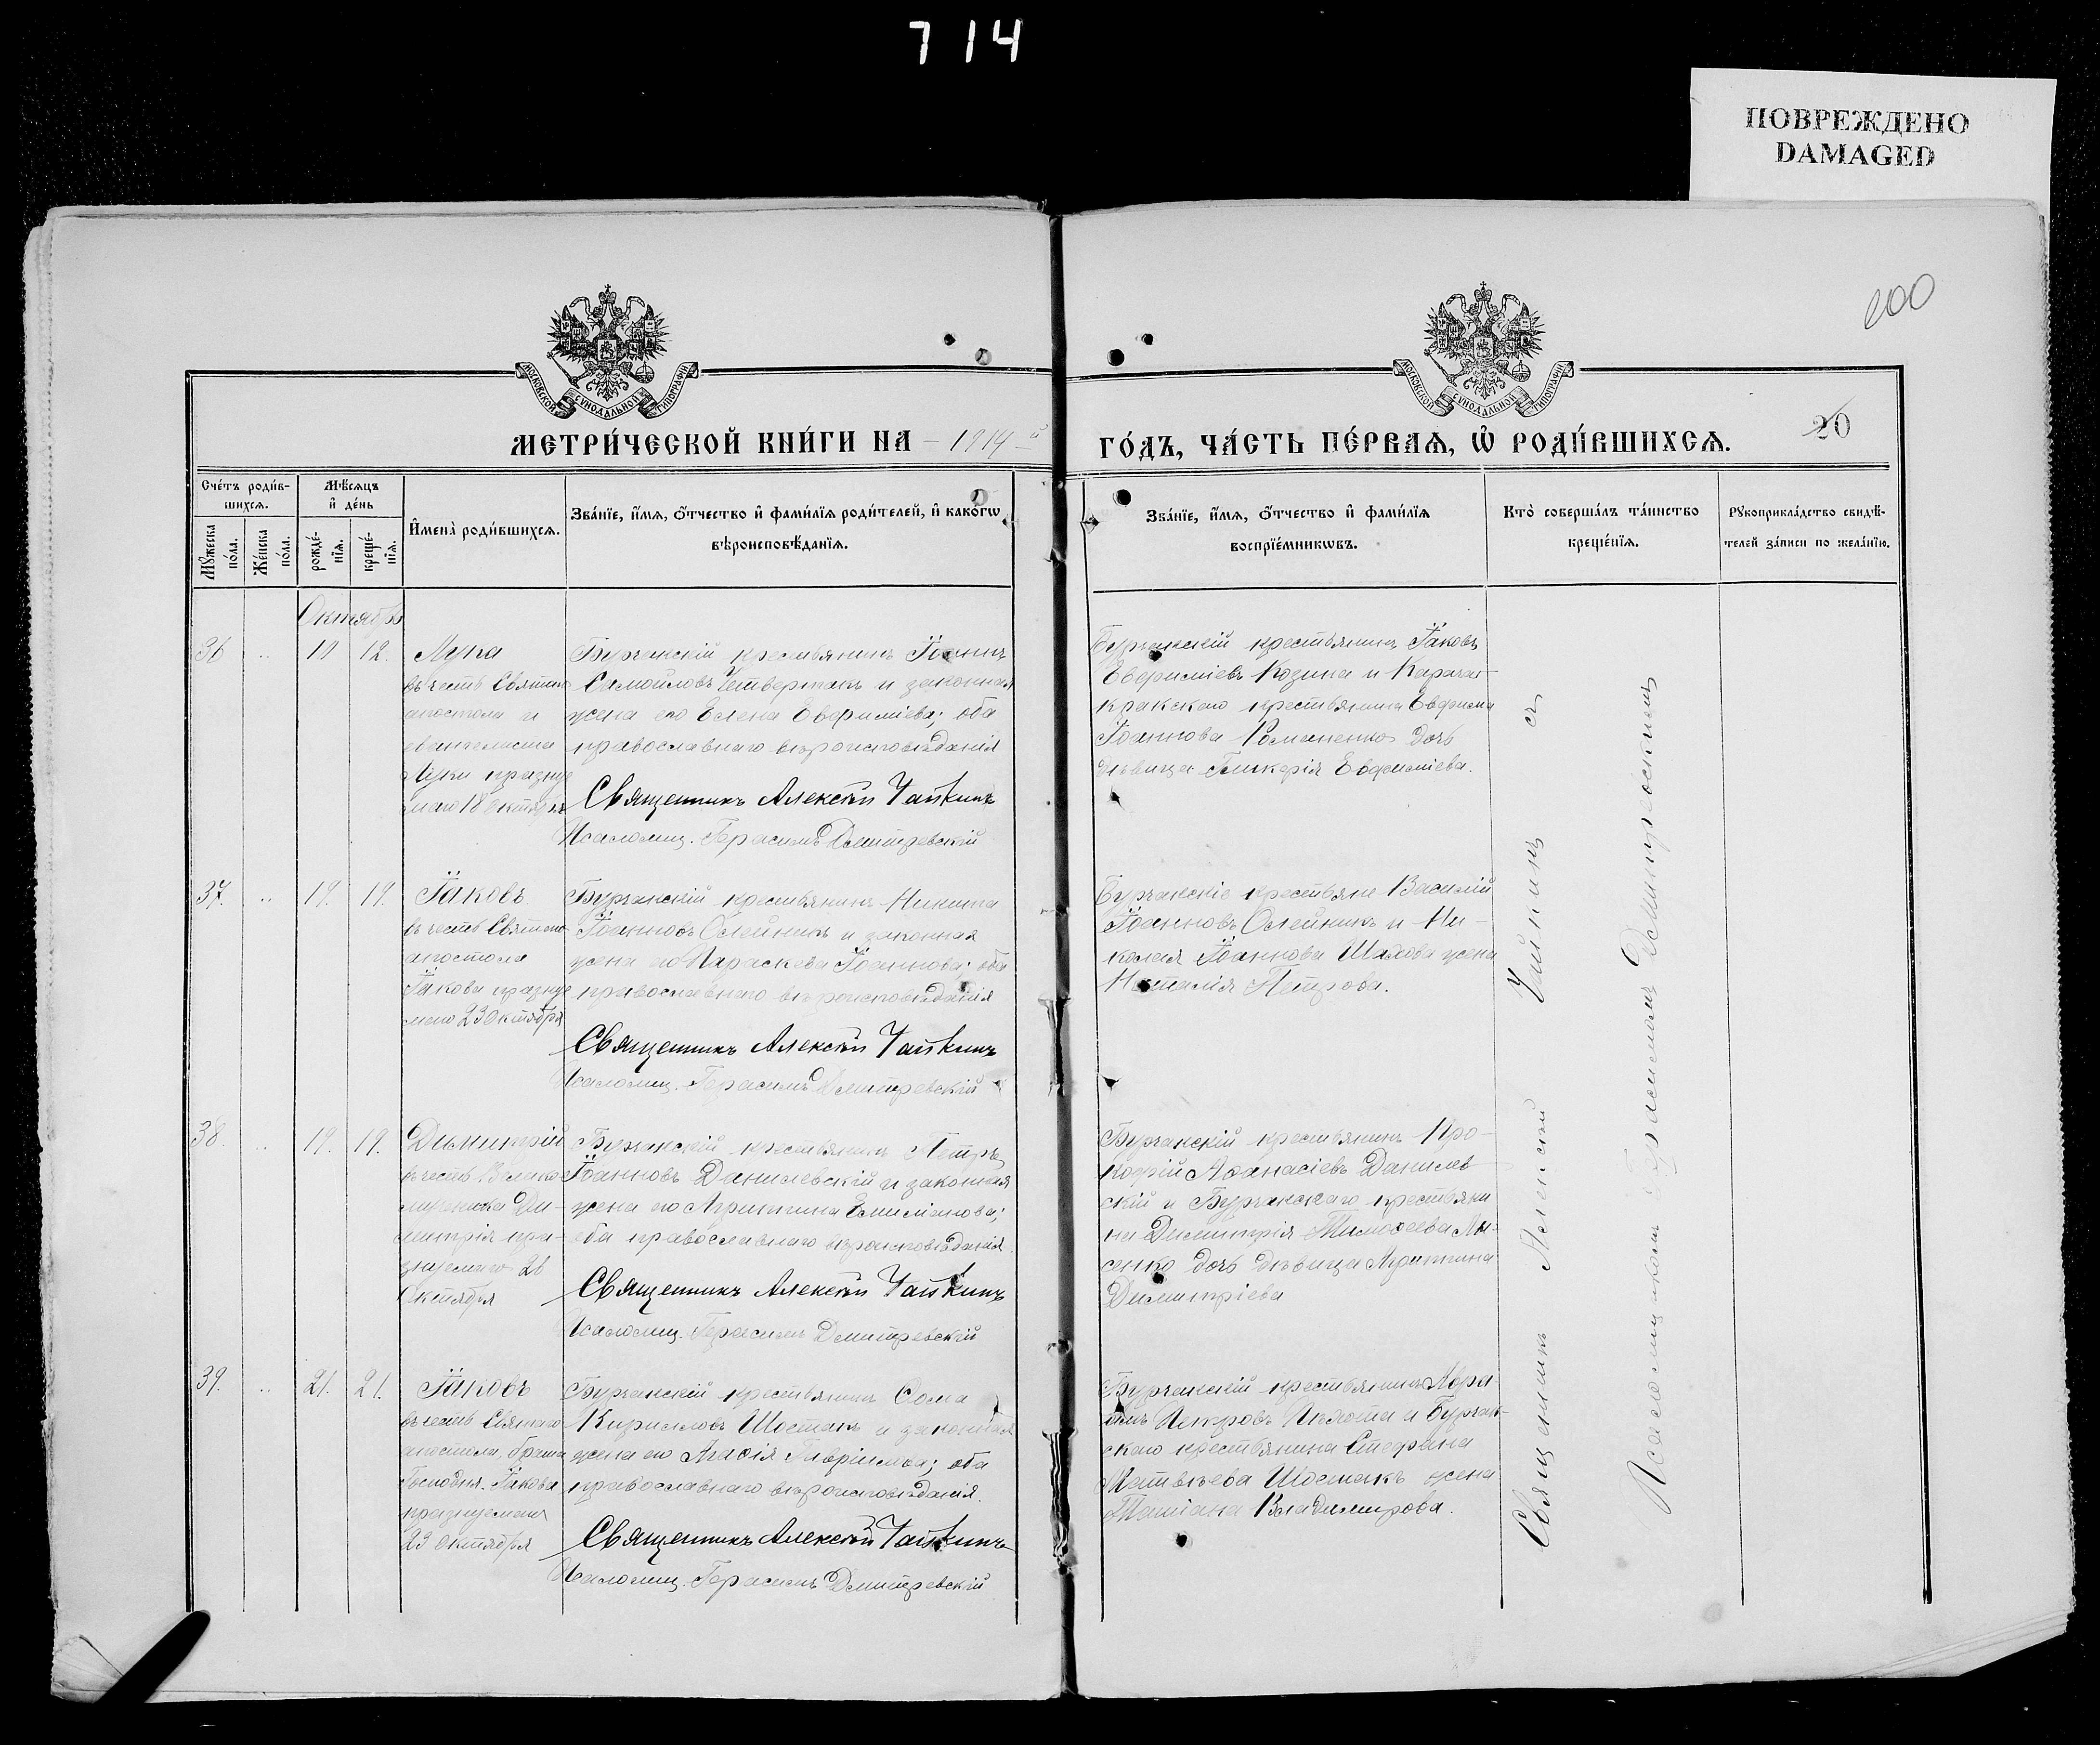 714
ПОВРЕЖДЕНО
DAMAGED
200
МОСКОВСКОЙ СѴНОДАЛЬНОЙ ТИПОГРАФІИ
МОСКОВСКОЙ СѴНОДАЛЬНОЙ ТИПОГРАФІИ
20
МЕТРИ́ЧЕСКОЙ КНИ́ГИ НА 1914 й
ГО́ДЪ, ЧА́СТЬ ПЕ́РВАѦ, Ѡ҆ РОДИ́ВШИХСѦ.
Сче́тъ роди́в-
шихсѧ.
Мꙋ́жеска по́ла.
Же́нска по́ла.
Мѣ́сѧцъ
и҆ де́нь
рожде́-
нїѧ.
креще́-
нїѧ.
И҆мена̀ роди́вшихсѧ.
Зва́нїе, и҆́мѧ, ѻ҆́тчество и҆ фами́лїѧ роди́телей, и҆ како́гѡ
вѣроисповѣ́данїѧ.
Зва́нїе, и҆́мѧ, ѻ҆́тчество и҆ фами́лїѧ
воспрїе́мникѡвъ.
Кто̀ соверша́лъ та́инство
креще́нїѧ.
Рꙋкоприкла́дство свидѣ́-
телей за́писи по жела́нїю.
Октябрь
36 .. 10 12.
Лука
въ честь Святаго
апостола и
евангелиста
Луки праздну
емаго 18 октября
Бурчакскій крестьянинъ Іоаннъ
Самойловъ Четвертакъ и законная
жена его Елена Евфиміева; оба
православнаго вѣроисповѣданія
Священникъ Алексѣй Чайкинъ
Псаломщ. Герасимъ Дмитревскій
Бурчакскій крестьянинъ Іаковъ
Евфиміевъ Козина и Карачек-
кракскаго крестьянина Евфима
Іоаннова Романенко дочь
дѣвица Гликерія Евфиміева.
37. .. 19. 19.
Іаковъ
въ честь Святаго
апостола
Іакова праздну
емаго 23 Октября
Бурчакскій крестьянинъ Никита
Іоанновъ Олейникъ и законная
жена его Параскева Іоаннова; оба
православнаго вѣроисповѣданія
Священникъ Алексѣй Чайкинъ
Псаломщ. Герасимъ Дмитревскій
Бурчакскіе крестьяне Василій
Іоанновъ Олейникъ и Ни-
колая Іоаннова Шахова жена
Наталія Петрова.
38. .. 19. 19.
Димитрій
въ честь Велико
мученика Ди-
митрія пра-
зднуемаго 26
Октября
Бурчакскій крестьянинъ Петръ
Іоанновъ Данилевскій и законная
жена его Агриппина Емиліанова;
оба православнаго вѣроисповѣданія.
Священникъ Алексѣй Чайкинъ
Псаломщ. Герасимъ Дмитревскій
Бурчакскій крестьянинъ Про-
кофій Аѳанасіевъ Данилев
скій и Бурчакскаго крестьяни
на Димитрія Тимоѳеева Лы-
сенко дочь дѣвица Агриппина
Димитріева
39. .. 21. 21.
Іаковъ
въ честь Святаго
апостола, брата
Господня Іакова
празднуемаго
23 октября
Бурчакскій крестьянинъ Ѳома
Кирилловъ Шостакъ и законная
жена его Агафія Гавріилова; оба
православнаго вѣроисповѣданія.
Священникъ Алексѣй Чайкинъ
Псаломщ. Герасимъ Дмитревскій
Бурчакскій крестьянинъ Авра-
амъ Петровъ и Бурчак-
скаго крестьянина Стефана
Матвѣева Шостакъ жена
Татіана Владимирова.
Священникъ Алексѣй Чайкинъ съ
Псаломщикомъ Герасимомъ Дмитревскимъ